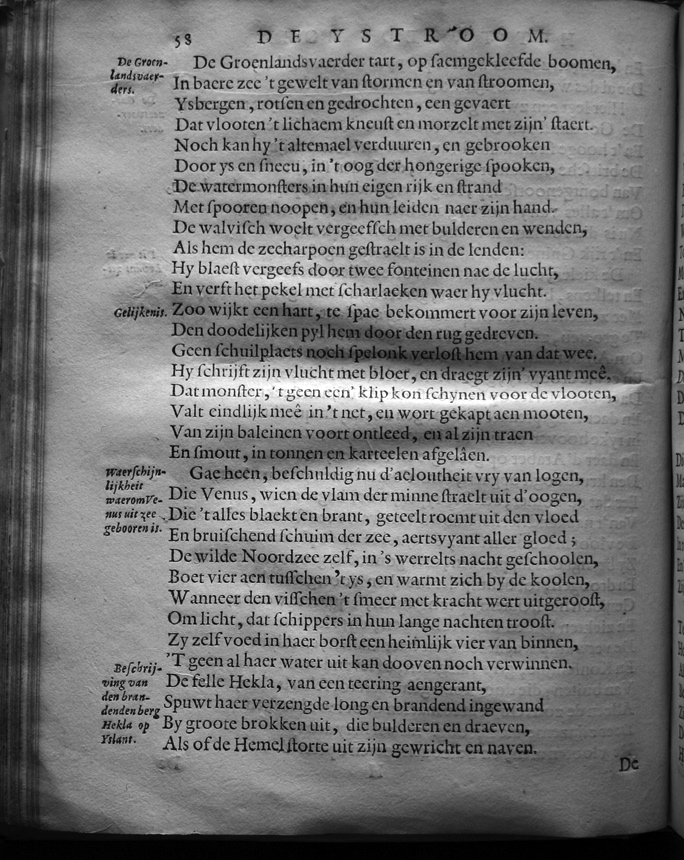 58 DE YSTROOM.
De Groen-
landsvaer-
ders.
De Groenlandsvaerder tart, op ſaemgekleefde boomen,
In baere zee 't gewelt van ſtormen en van ſtroomen,
Ysbergen, rotſen en gedrochten, een gevaert
Dat vlooten 't lichaem kneuſt en morzelt met zijn' ſtaert.
Noch kan hy 't altemael verduuren, en gebrooken
Door ys en ſneeu, in 't oog der hongerige ſpooken,
De watermonſters in hun eigen rijk en ſtrand
Met ſpooren noopen, en hun leiden naer zijn hand.
De walviſch woelt vergeefſch met bulderen en wenden,
Als hem de zeeharpoen geſtraelt is in de lenden:
Hy blaeſt vergeefs door twee fonteinen nae de lucht,
En verft het pekel met ſcharlaeken waer hy vlucht.
Gelijkenis.
Zoo wijkt een hart, te ſpae bekommert voor zijn leven,
Den doodelijken pyl hem door den rug gedreven.
Geen ſchuilplaets noch ſpelonk verloſt hem van dat wee.
Hy ſchrijft zijn vlucht met bloet, en draegt zijn' vyant meê.
Dat monſter, 't geen een' klip kon ſchynen voor de vlooten,
Valt eindlijk meê in 't net, en wort gekapt aen mooten,
Van zijn baleinen voort ontleed, en al zijn traen
En ſmout, in tonnen en karteelen afgelâen.
Waerſchijn-
lijkheit
waerom Ve-
nus uit zee
gebooren is.
Gae heen, beſchuldig nu d'aeloutheit vry van logen,
Die Venus, wien de vlam der minne ſtraelt uit d'oogen,
Die 't alles blaekt en brant, geteelt roemt uit den vloed
En bruiſchend ſchuim der zee, aertsvyant aller gloed;
De wilde Noordzee zelf, in 's werrelts nacht geſchoolen,
Boet vier aen tuſſchen 't ys, en warmt zich by de koolen,
Wanneer den viſſchen 't ſmeer met kracht wert uitgerooſt,
Om licht, dat ſchippers in hun lange nachten trooſt.
Zy zelf voed in haer borſt een heimlijk vier van binnen,
'T geen al haer water uit kan dooven noch verwinnen.
Beſchrij-
ving van
den bran-
denden berg
Hekla op
Yslant.
De felle Hekla, van een teering aengerant,
Spuwt haer verzengde long en brandend ingewand
By groote brokken uit, die bulderen en draeven,
Als of de Hemel ſtorte uit zijn gewricht en naven.
De